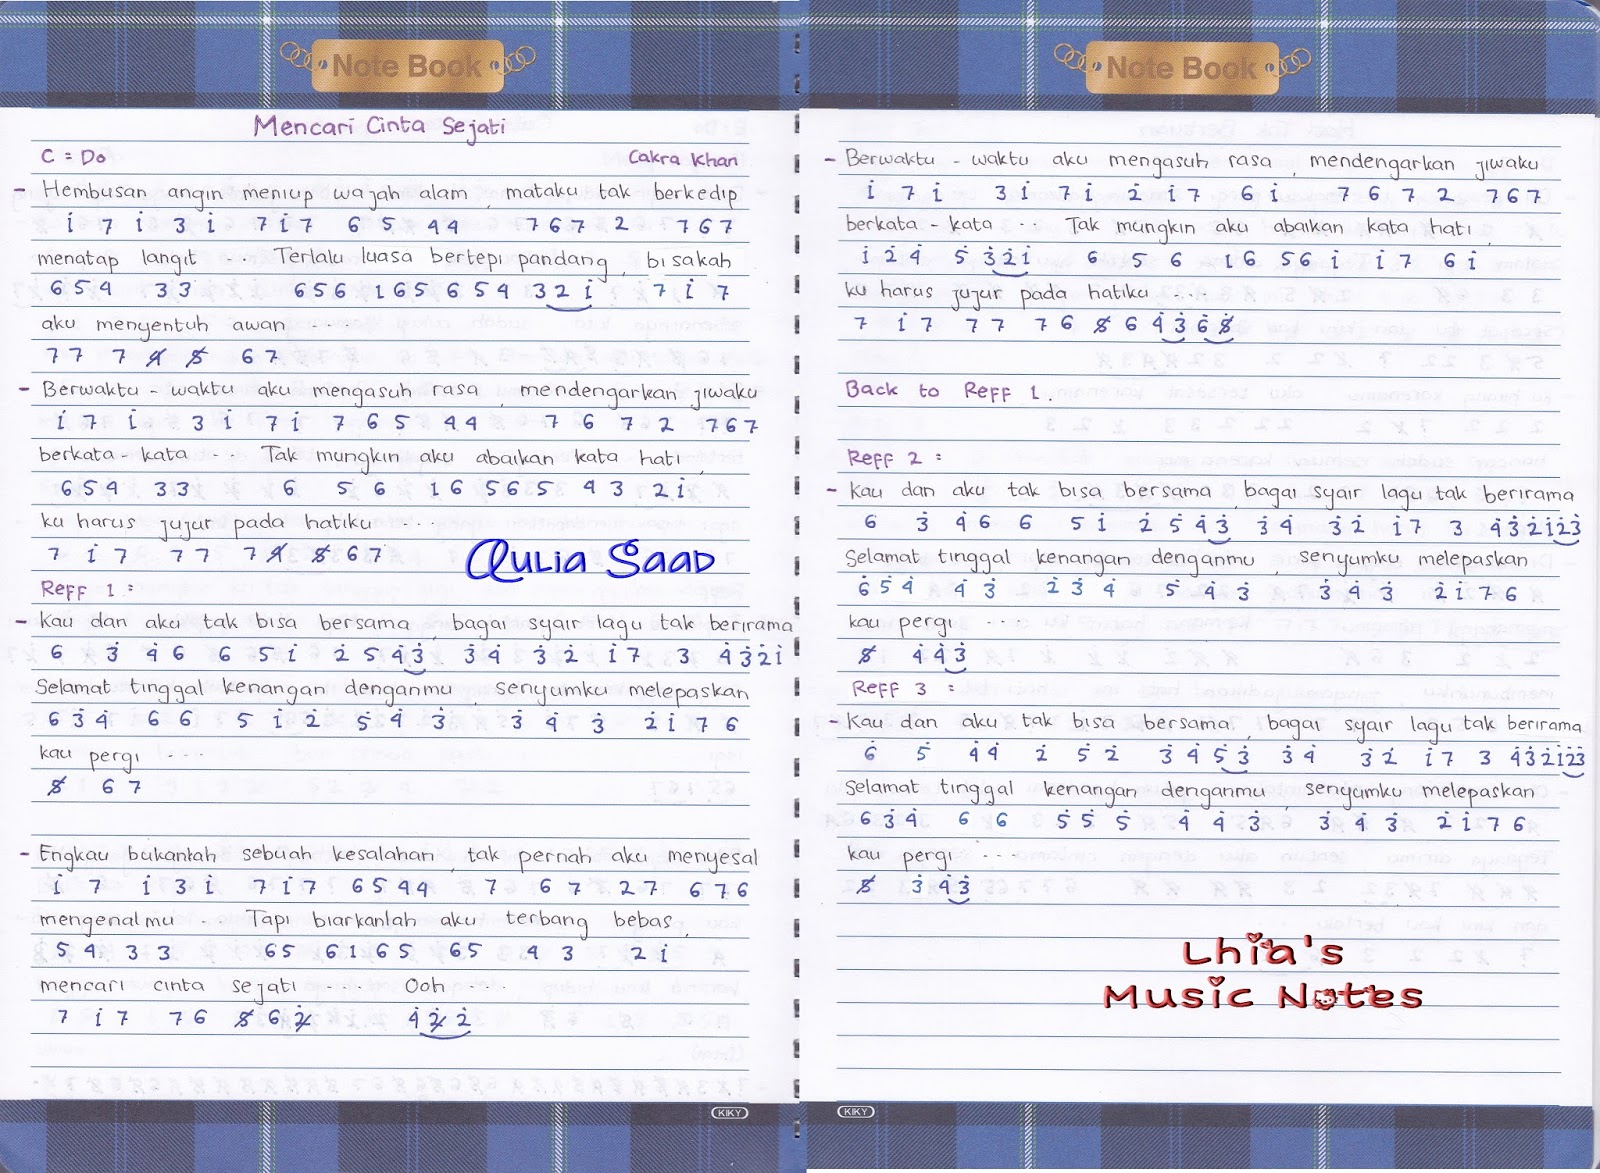 Note Book
Mencari Cinta Sejati
C = Do Cakra Khan
- Hembusan angin meniup wajah alam, mataku tak berkedip
i̇ 7 i̇ 3 i̇ 7 i̇ 7 6 5 4 4 7 6 7 2 7 6 7
menatap langit ... Terlalu luasa bertepi pandang, bisakah
6 5 4 3 3 6 5 6 1 6 5 6 5 4 3 2 i̇ 7 i̇ 7
aku menyentuh awan ....
7 7 7 4̸ 5̸ 6 7
- Berwaktu - waktu aku mengasuh rasa, mendengarkan jiwaku
i̇ 7 i̇ 3 i̇ 7 i̇ 7 6 5 4 4 7 6 7 2 7 6 7
berkata - kata ... Tak mungkin aku abaikan kata hati,
6 5 4 3 3 6 5 6 1 6 5 6 5 4 3 2 i̇
ku harus jujur pada hatiku ....
7 i̇ 7 7 7 7 4̸ 5̸ 6 7
Aulia Saad
Reff 1 :
- Kau dan aku tak bisa bersama, bagai syair lagu tak berirama
6 3̇ 4̇ 6 6 5 i̇ 2̇ 5 4̇ 3̇ 3̇ 4̇ 3̇ 2̇ i̇ 7 3 4̇ 3̇ 2̇ i̇
Selamat tinggal kenangan denganmu, senyumku melepaskan
6 3̇ 4̇ 6 6 5 i̇ 2̇ 5 4̇ 3̇ 3̇ 4̇ 3̇ 2̇ i̇ 7 6
kau pergi ....
5̸ 6 7
- Engkau bukanlah sebuah kesalahan, tak pernah aku menyesal
i̇ 7 i̇ 3 i̇ 7 i̇ 7 6 5 4 4 7 6 7 2 7 6 7 6
mengenalmu .. Tapi biarkanlah aku terbang bebas,
5 4 3 3 6 5 6 1 6 5 6 5 4 3 2 i̇
mencari cinta sejati .... Ooh ....
7 i̇ 7 7 6 5̸ 6 2̸ 4̇ 2̸̇ 2̇
KIKY
Note Book
- Berwaktu - waktu aku mengasuh rasa, mendengarkan jiwaku
i̇ 7 i̇ 3 i̇ 7 i̇ 2̇ i̇ 7 6 i̇ 7 6 7 2 7 6 7
berkata - kata ... Tak mungkin aku abaikan kata hati,
i̇ 2̇ 4̇ 5 3̇ 2̇ i̇ 6 5 6 1 6 5 6 i̇ i̇ 7 6 i̇
ku harus jujur pada hatiku ....
7 i̇ 7 7 7 7 6 5̸ 6 4̇ 3̇ 6̇ 5̸̇
Back to Reff 1.
Reff 2 :
- Kau dan aku tak bisa bersama, bagai syair lagu tak berirama
6 3̇ 4̇ 6 6 5 i̇ 2̇ 5 4̇ 3̇ 3̇ 4̇ 3̇ 2̇ i̇ 7 3 4̇ 3̇ 2̇ i̇ 2̇ 3̇
Selamat tinggal kenangan denganmu, senyumku melepaskan
6̇ 5̇ 4̇ 4̇ 3̇ 2̇ 3̇ 4̇ 5̇ 4̇ 3̇ 3̇ 4̇ 3̇ 2̇ i̇ 7 6
kau pergi ....
5̸ 4̇ 4̇ 3̇
Reff 3 :
- Kau dan aku tak bisa bersama, bagai syair lagu tak berirama
6̇ 5̇ 4̇ 4̇ 2̇ 5̇ 2̇ 3̇ 4̇ 5̇ 3̇ 3̇ 4̇ 3̇ 2̇ i̇ 7 3 4̇ 3̇ 2̇ i̇ 2̇ 3̇
Selamat tinggal kenangan denganmu, senyumku melepaskan
6 3̇ 4̇ 6 6 5̇ 5̇ 5̇ 4̇ 4̇ 3̇ 3̇ 4̇ 3̇ 2̇ i̇ 7 6
kau pergi ....
5̸ 3̇ 4̇ 3̇
Lhia's
Music Notes
KIKY